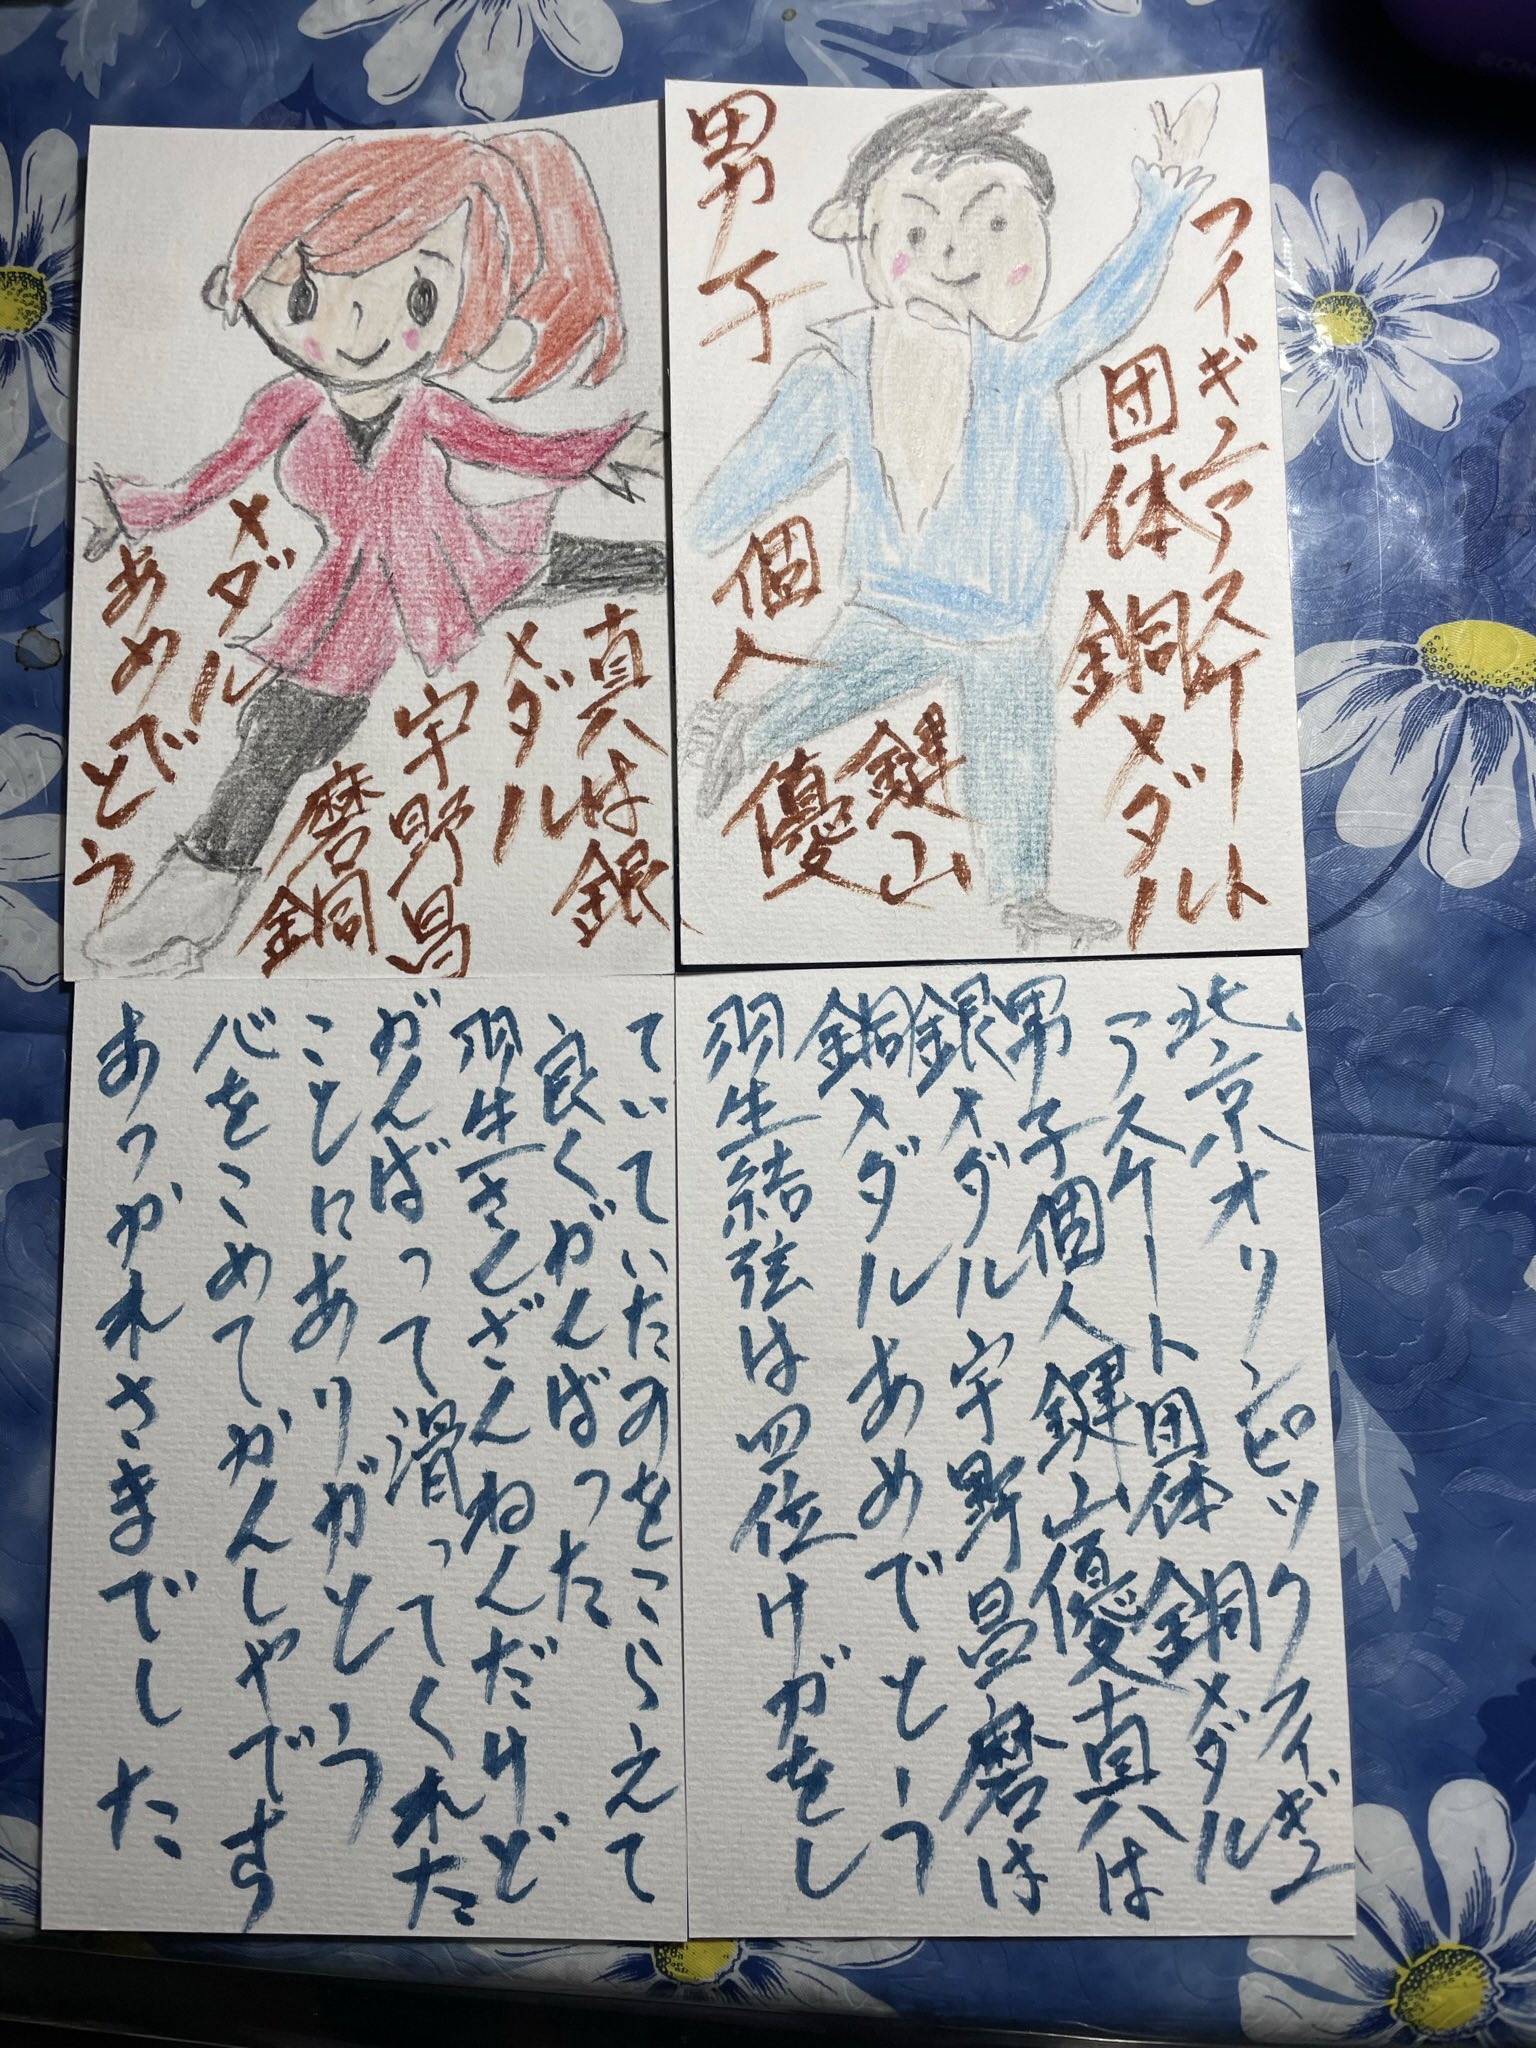 フィギュアスケート
団体銅メダル
男子
個人
鍵山
優
真は銀
メダル
宇野昌
磨銅
メダル
あめでとう
北京オリンピックフィギュ
アスケート団体銅メダル
男子個人鍵山優真は
銀メダル宇野昌磨は
銅メダルあめでとう
羽生結弦は四位けガをし
ていていたのをこらえて
良くがんばった
羽生さんざんねんだけど
がんばって滑ってくれた
ことにありがとう
心をこめてかんしやです
あつかれさまでした